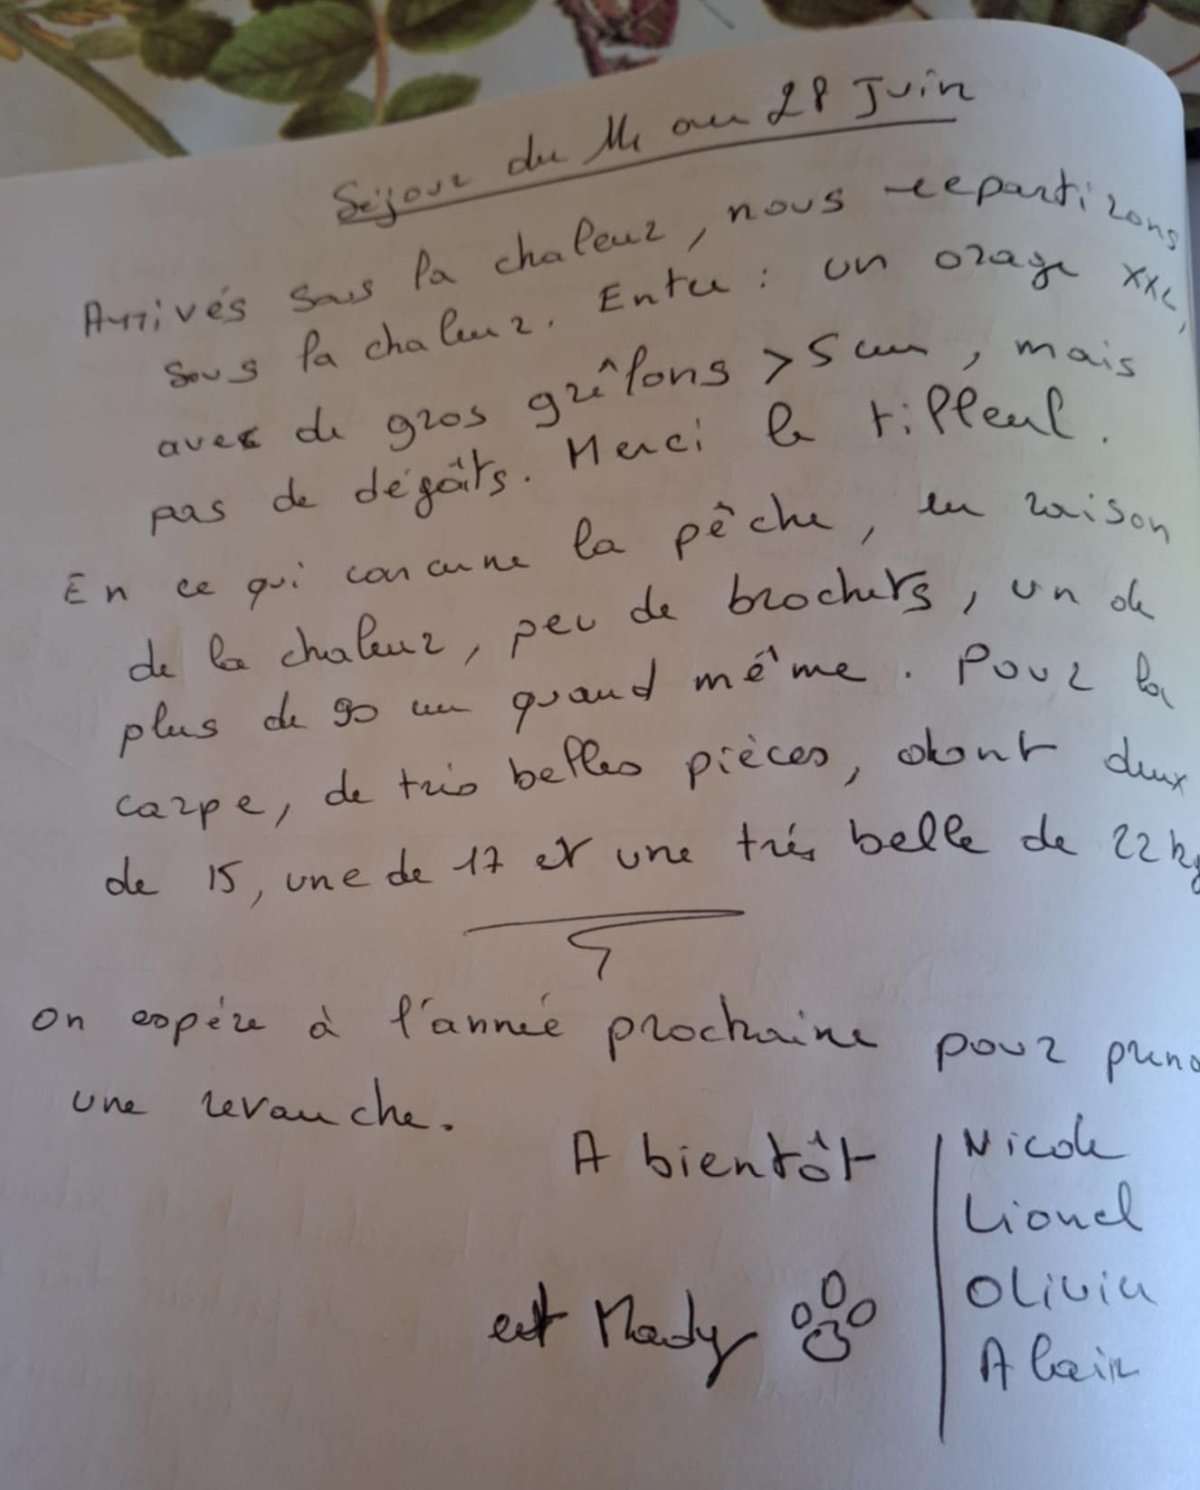 Séjour du 14 au 28 Juin
Arrivés sous la chaleur, nous repartirons
sous la chaleur. Entre : un orage XXL,
avec de gros grêlons > 5 cm, mais
pas de dégâts. Merci le tilleul.
En ce qui concerne la pêche, en raison
de la chaleur, peu de brochets, un de
plus de 90 cm quand même. Pour la
carpe, de très belles pièces, dont deux
de 15, une de 17 et une très belle de 22 kg
On espère à l'année prochaine pour prend
une revanche.
A bientôt
Nicole
Lionel
Olivier
Alain
et Mady